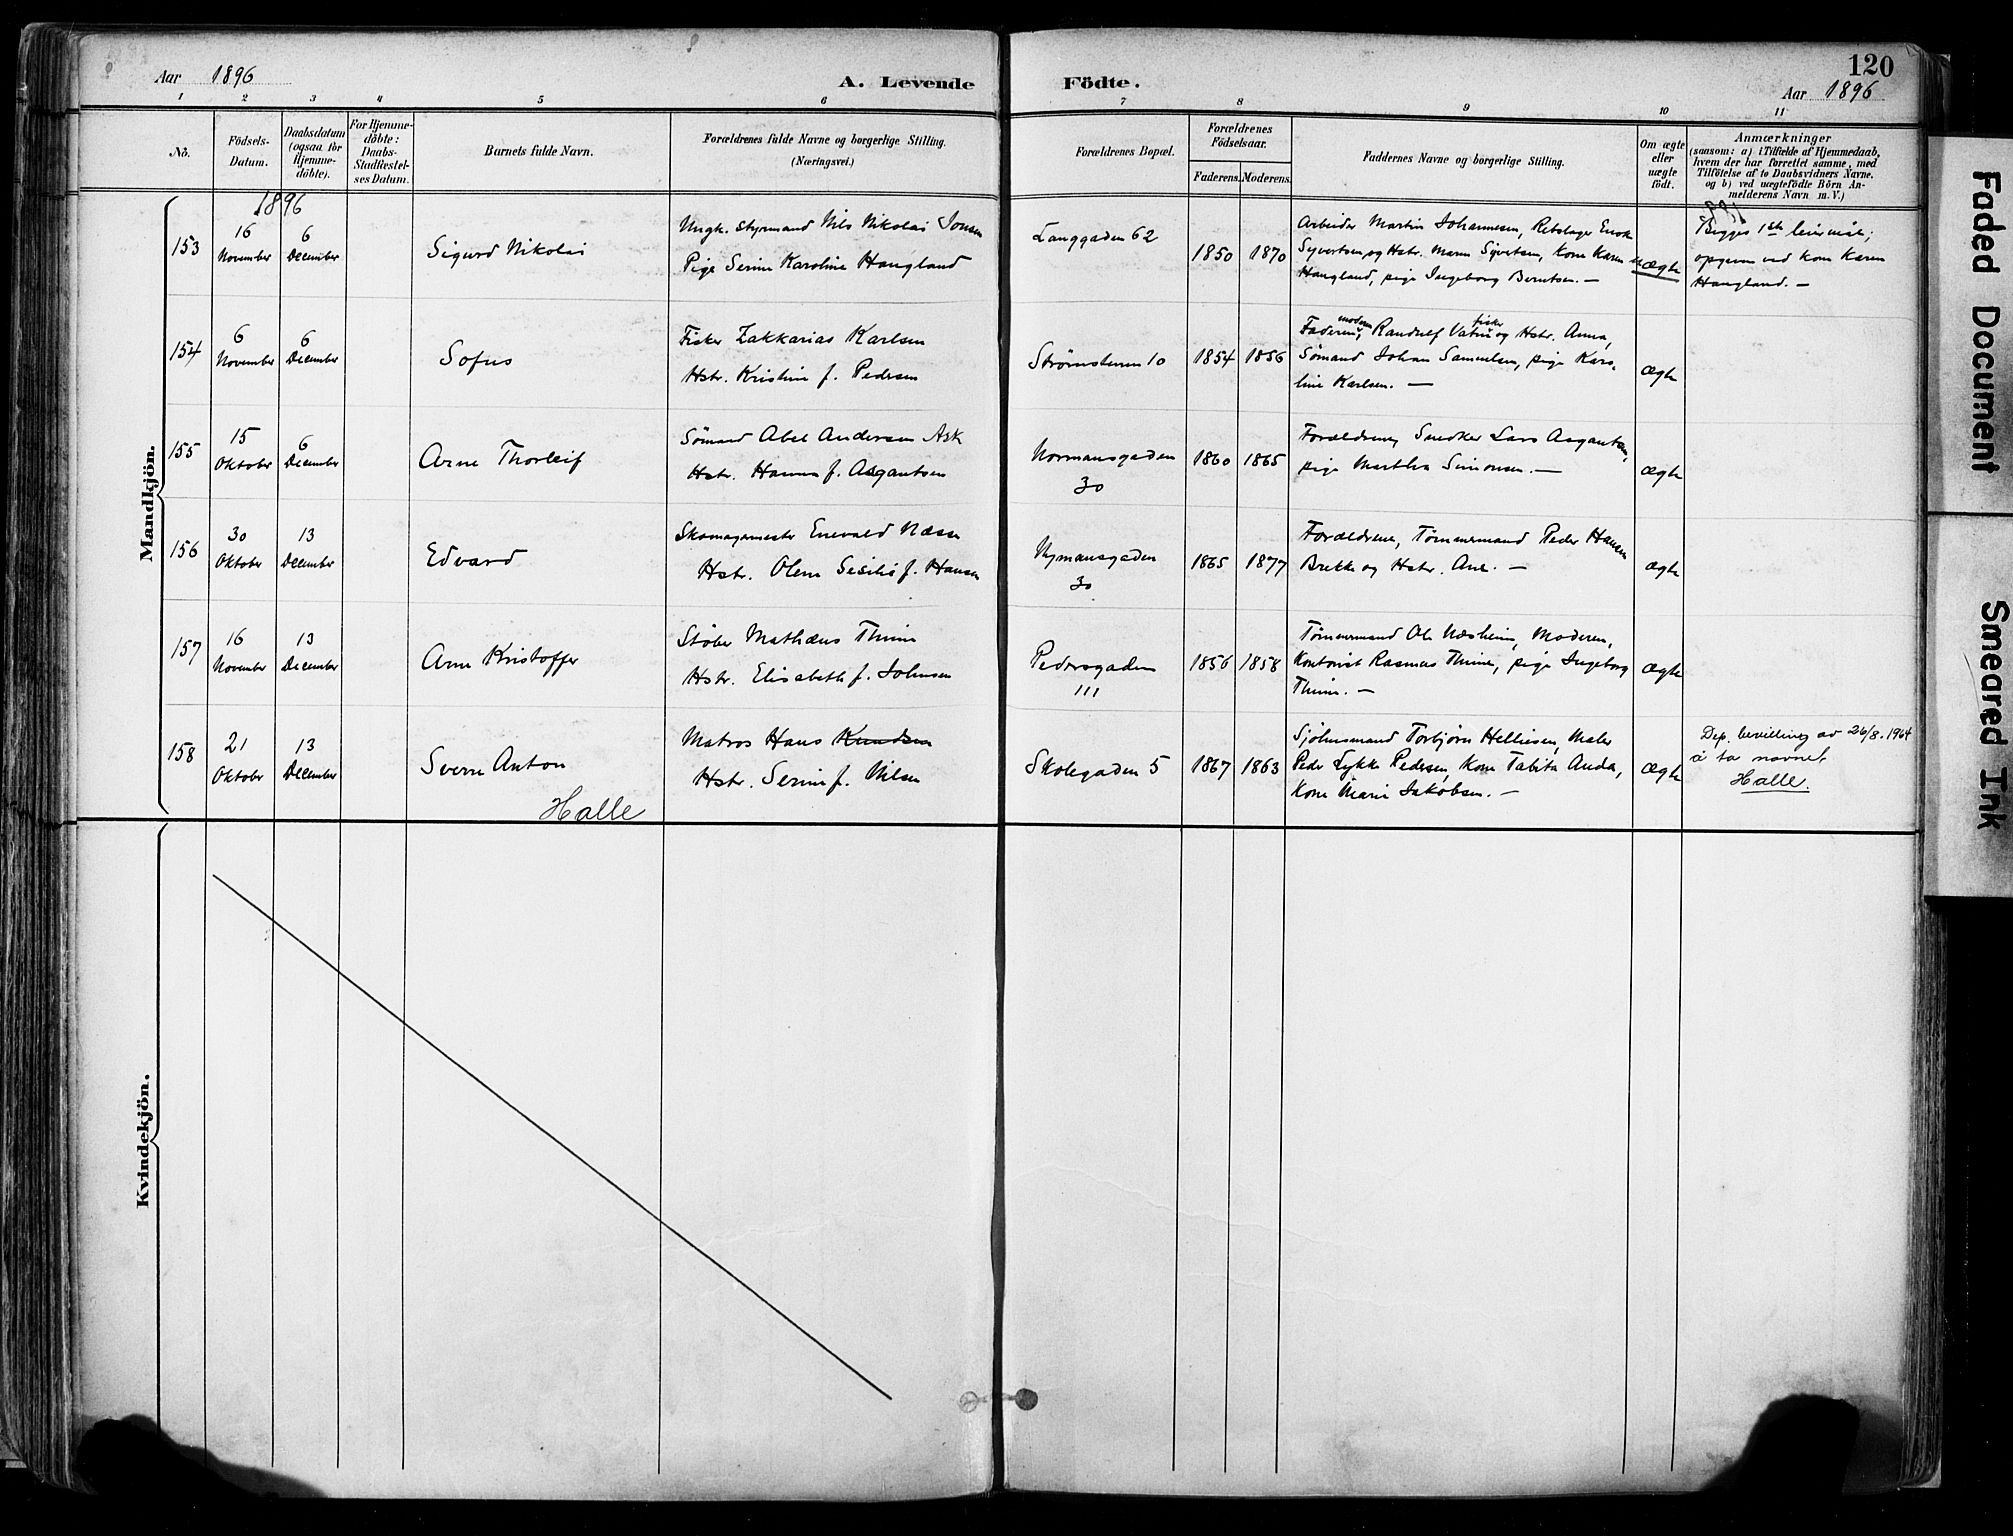 120
Aar 1896
A. Levende Födte.
Aar 1896
1 2 3 4 5 6 7 8 9 10 11
Nö.
Födsels-
Datum.
Daabsdatum
(ogsaa for
Hjemme-
döbte).
For Hjemme-
döbte:
Daabs-
Stadfestel-
ses Datum.
Barnets fulde Navn.
Forældrenes fulde Navne og borgerlige Stilling.
(Næringsvei.)
Forældrenes Bopæl.
Forældrenes
Födselsaar.
Faderens. Moderens.
Faddernes Navne og borgerlige Stilling.
Om ægte
eller
uægte
födt.
Anmærkninger
(saasom: a) i Tilfælde af Hjemmedaab,
hvem der har forrettet samme, med
Tilföielse af to Daabsvidners Navne.
og b) ved uægtefödte Börn An-
melderens Navn m. V.)
Mandkjön.
1896
153
16
November
6
December
Sigurd Nikolai
Ungk. Styrmand Nils Nikolai Jonsen
Pige Serine Karoline Haugland
Langgaden 62
1850 1870
Arbeider Martin Johannesen, Rebslager Enok
Syvertsen og Hstr. Maren Syvertsen, Kone Karen
Haugland, pige Ingeborg Berntsen. —
uægte
Begges 1ste leiermål;
opgiven ved kone Karen
Haugland. —
154
6
November
6
December
Sofus
Fisker Zakkarias Karlsen
Hstr. Kristine f. Pedersen
Strømstenen 10
1854 1856
Faderen, moderen, Randulf Vatne fisker og Hstr. Anna,
Sømand Johan Samuelsen, pige Karo-
line Karlsen. —
ægte
155
15
Oktober
6
December
Arne Thorleif
Sömand Abel Andersen Ask
Hstr. Hanna f. Asgautsen
Normansgaden
30
1860 1865
Forældrene, Snedker Lars Asgautsen,
pige Martha Simonsen. —
ægte
156
30
Oktober
13
December
Edvard
Skomagermester Enevald Næsse
Hstr. Olene Sesilie f. Hansen
Nymansgaden
30
1865 1877
Forældrene, Tømmermand Peder Hansen
Brekke og Hstr. Ane. —
ægte
157
16
November
13
December
Arne Kristoffer
Støber Mathæus Thime
Hstr. Elisabeth f. Johnsen
Pedersgaden
111
1856 1858
Tømmermand Ole Næsheim, Moderen,
Kontorist Rasmus Thime, pige Ingeborg
Thime. —
ægte
158
21
Oktober
13
December
Sverre Anton
Halle
Matros Hans Knudsen
Hstr. Serine f. Nilsen
Skolegaden 5
1867 1863
Sjøhusmand Torbjørn Helliesen, Maler
Peder Lykke Pedersen, Kone Tabita Anda,
Kone Marie Jakobsen. —
ægte
Dep. bevilling av 26/8. 1964
å ta navnet
Halle.
Kvindekjön.
Faded Document
Smeared Ink